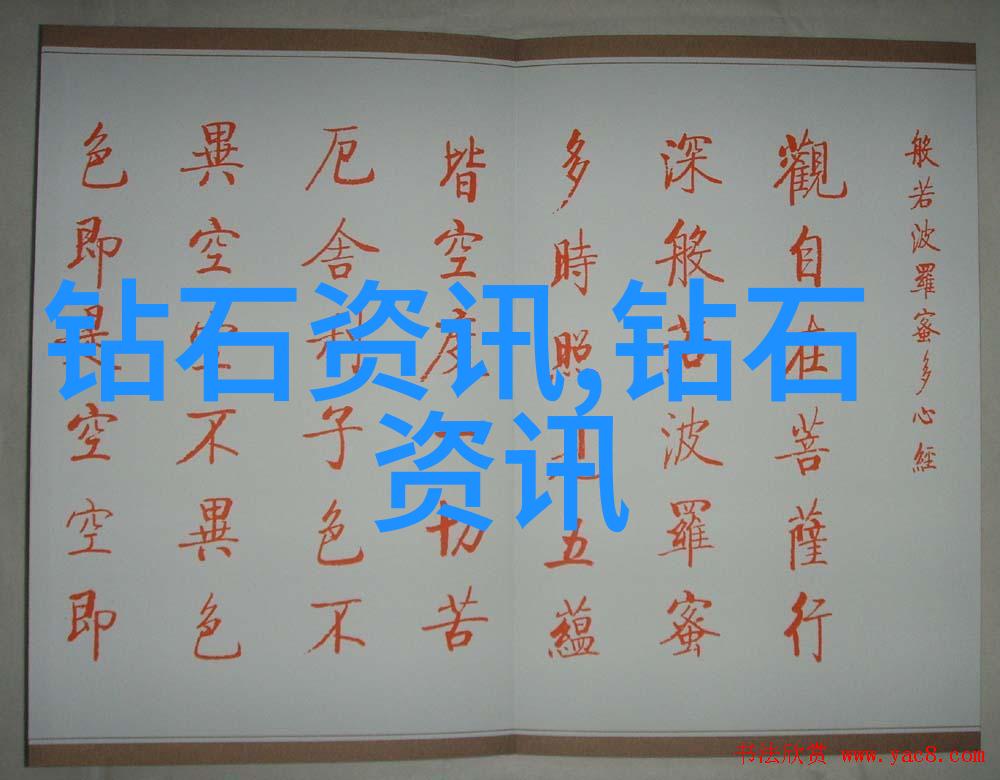 般若波羅蜜多心經
觀自在菩薩行
深般若波羅蜜
多時照見五蘊
皆空度一切苦
厄舍利子色不
異空空不異色
色即是空空即
钻石资讯,钻石
资讯
书法欣赏 www.yac8.com